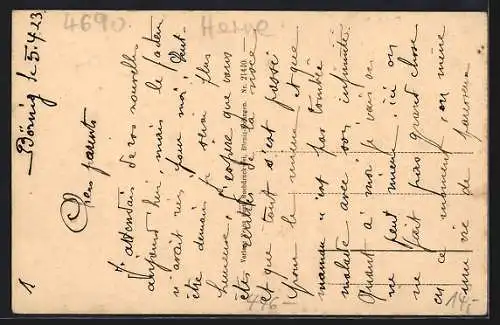 4690
Herne
Börnig le 5.4.23.
Chers parents
J'attendais de vos nouvelles
aujourd'hui, mais le facteur
n'avait rien pour moi. Peut-
être demain je serai plus
heureuse, j'espère que vous
êtes de la noce
et que tout s'est passé
pour le mieux et que
maman n'est pas tombée
malade avec son infirmité
Quant à moi je vais on
ne peut mieux, ici on
ne fait pas grand chose
en ce moment, on mène
une vie de
Nr. 21440.
1
14,-